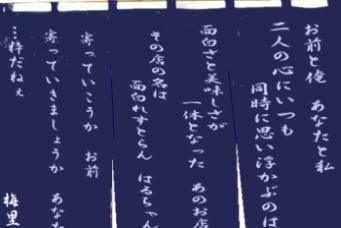 お前と俺　あなたと私
二人の心にいつも
同時に思い浮かぶのは
面白さと美味しさが
一体となった　あのお店
その店の名は
面白れすとらん　はるちゃん
寄っていこうか　お前
寄っていきましょうか　あなた
…粋だねぇ
梅里